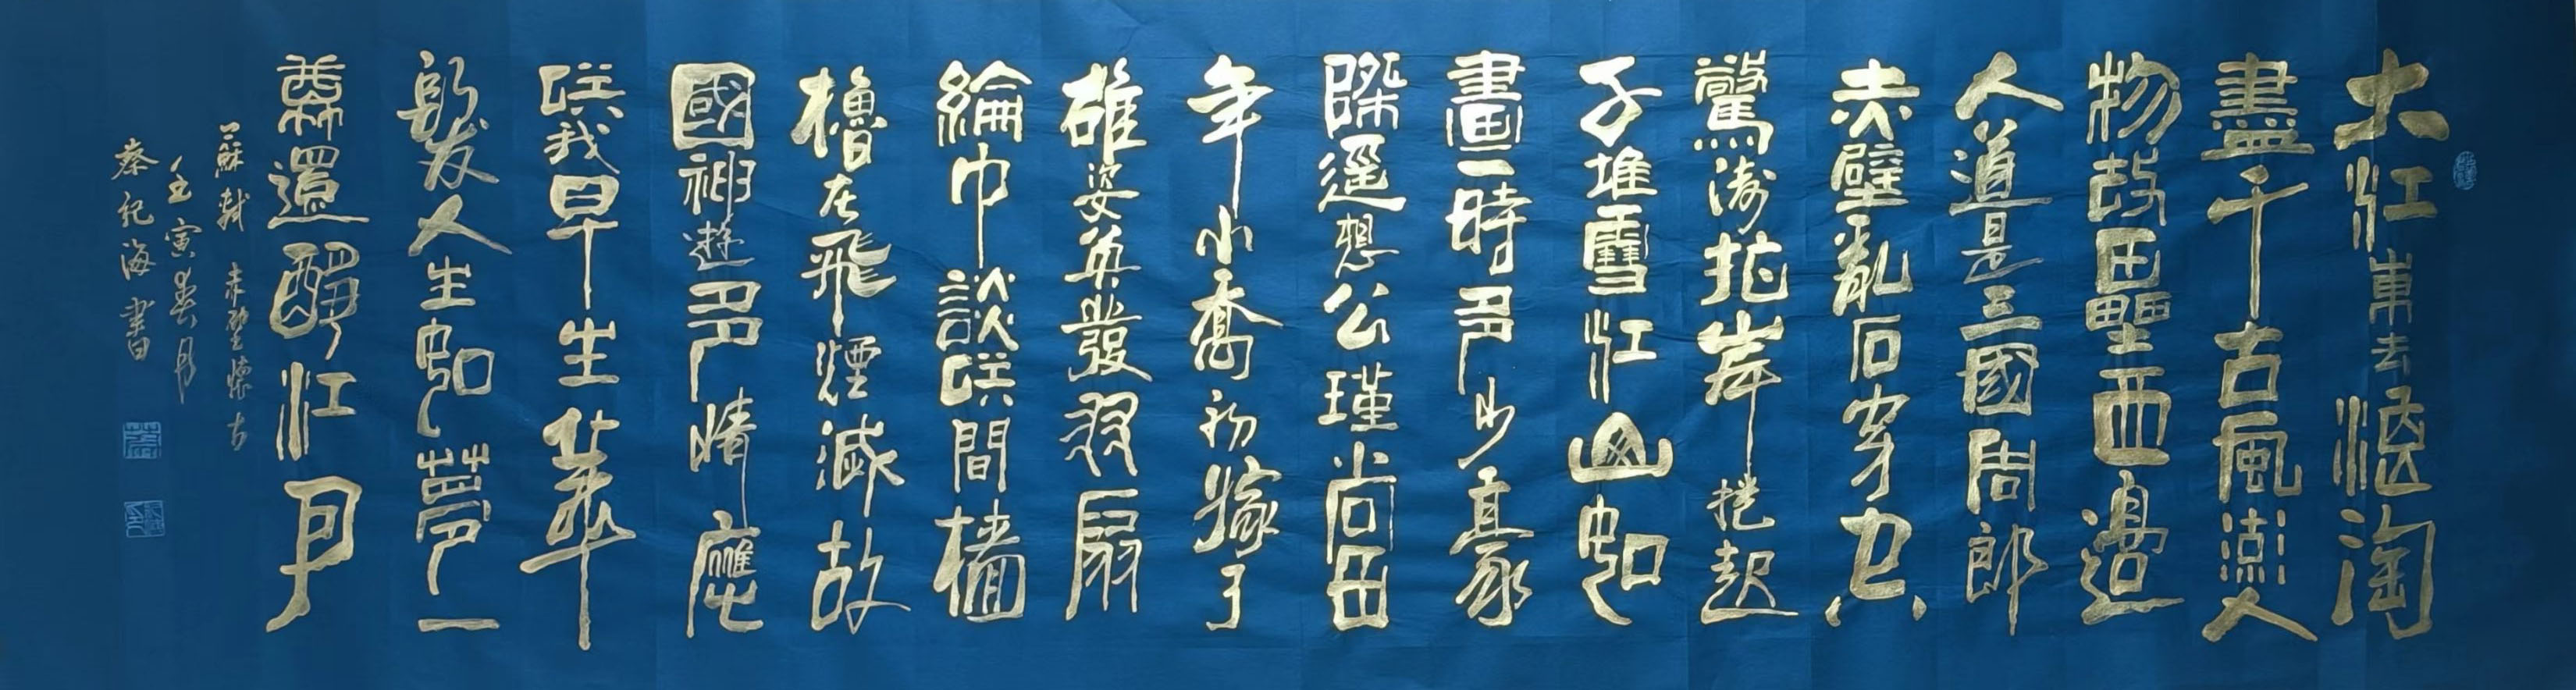 大江東去浪淘
盡千古風流人
物故壘西邊
人道是三國周郎
赤壁亂石穿空
驚濤拍岸捲起
千堆雪江山如
畫一時多少豪
傑遙想公瑾當
年小喬初嫁了
雄姿英發羽扇
綸巾談笑間檣
櫓灰飛煙滅故
國神遊多情應
笑我早生華
髮人生如夢一
尊還酹江月
蘇軾 赤壁懷古
壬寅春月
秦紀海書